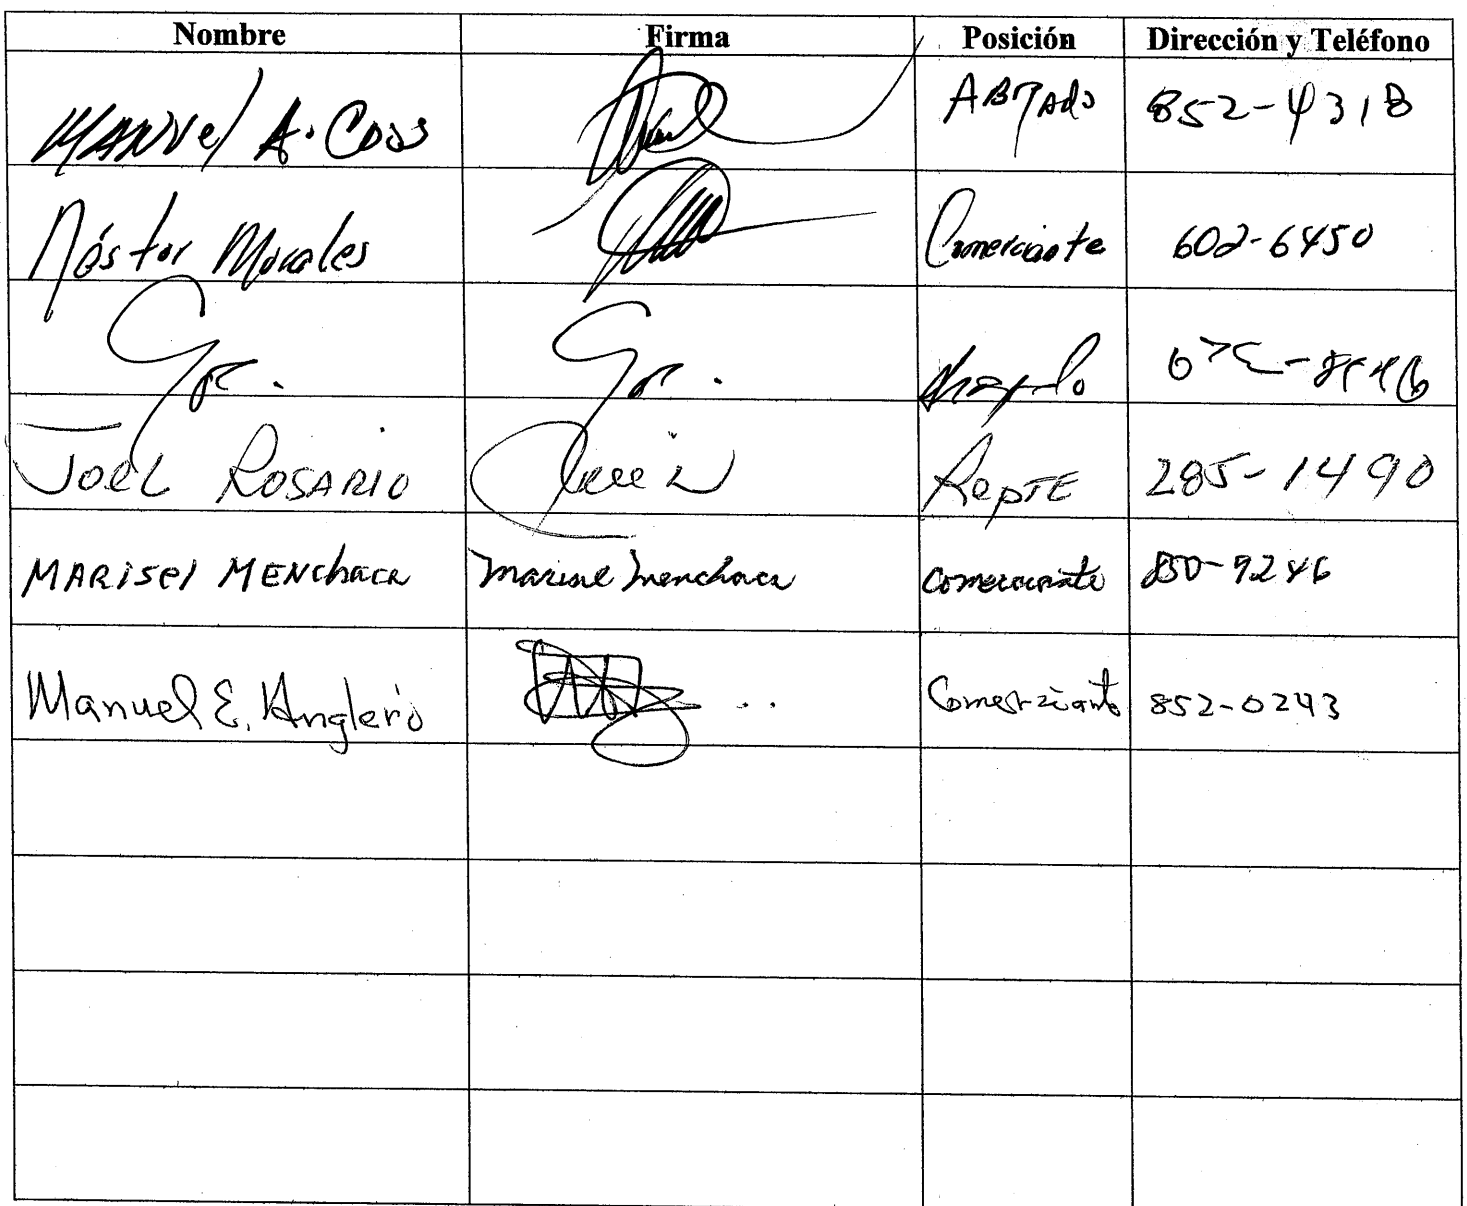 Nombre Firma Posición Dirección y Teléfono
MANUel A. Coss ABogAdo 852-4318
Néstor Morales Comerciante 602-6450
JOEL ROSARIO RepTE 285-1490
MARISel MENchaca Marisel Menchaca comerciante 850-9246
Manuel E. Angleró Comerciante 852-0243